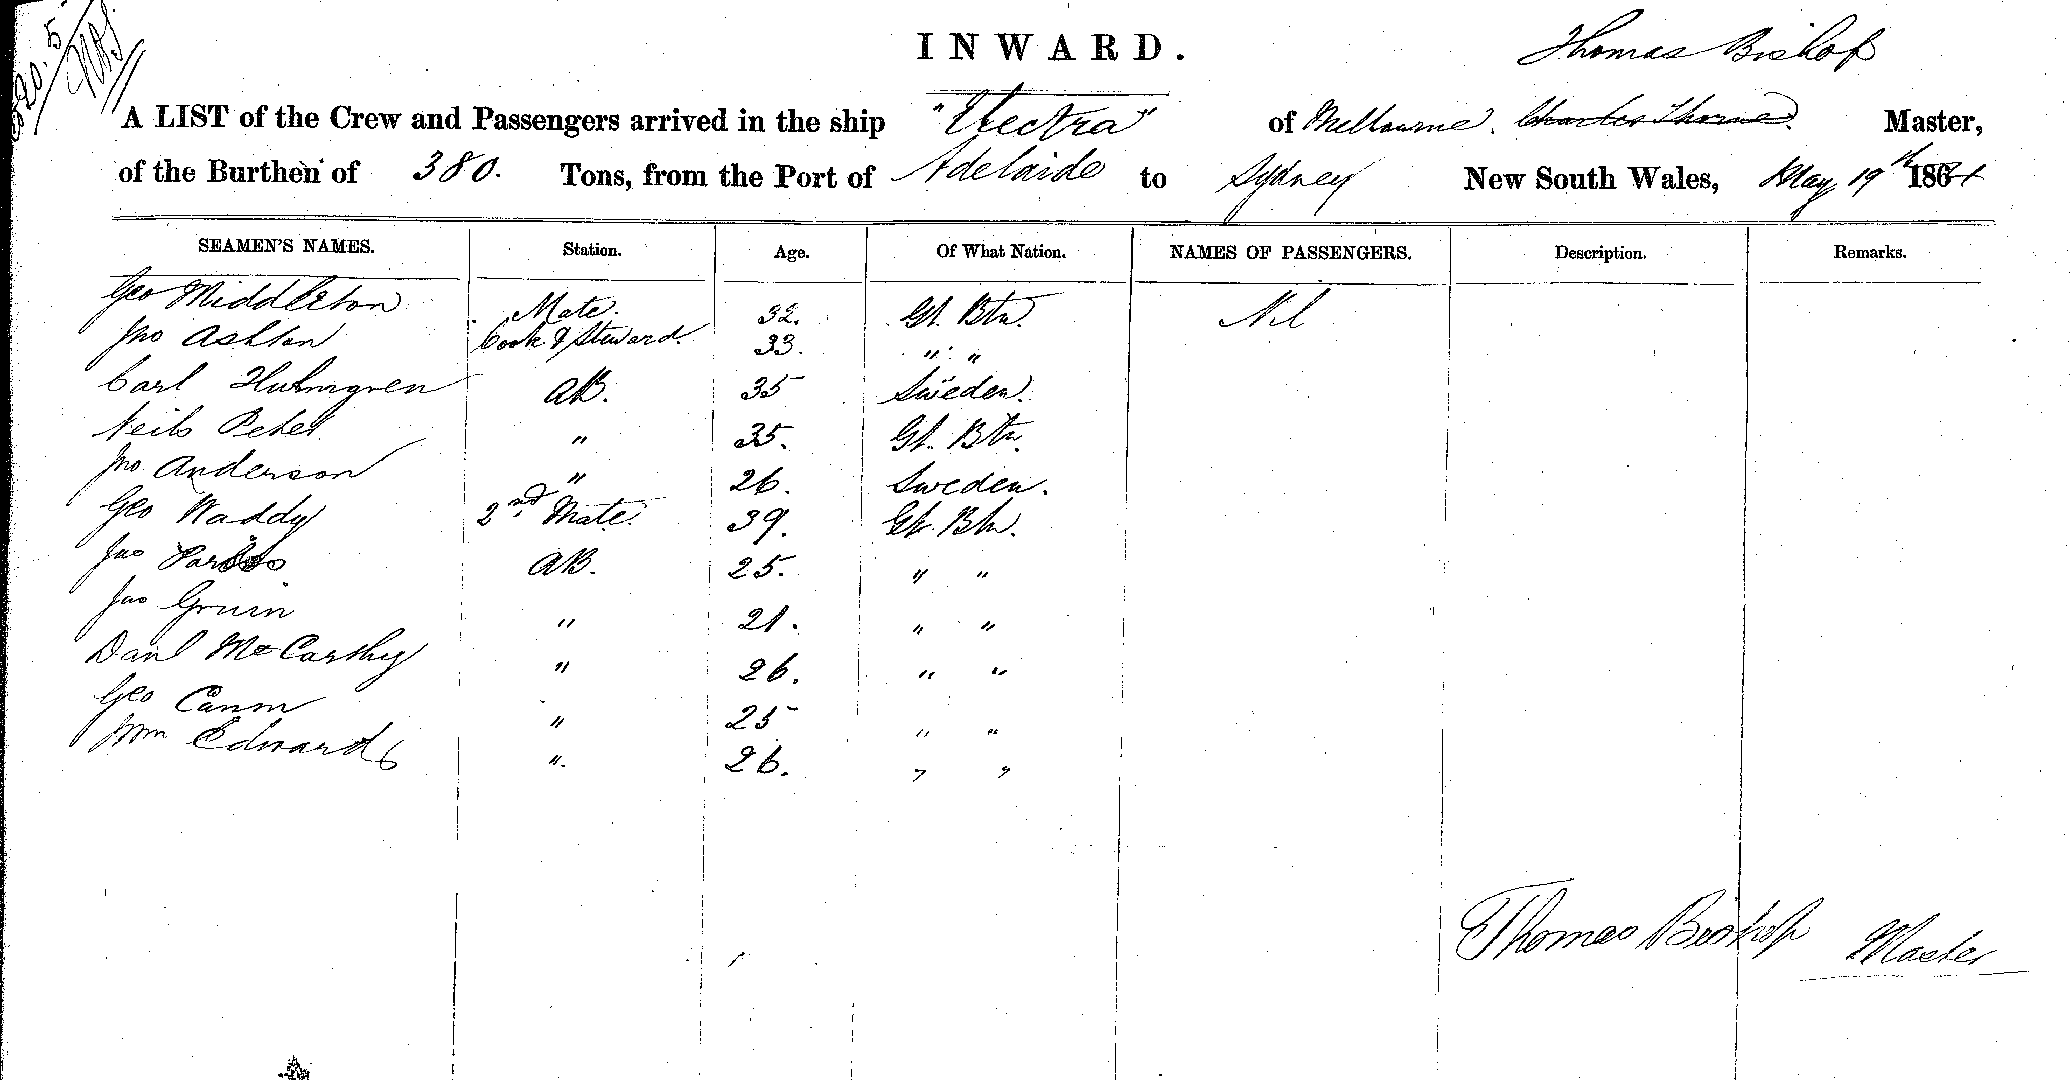 INWARD.
Thomas Bishop
A LIST of the Crew and Passengers arrived in the ship "Electra" of Melbourne. Charles Thorne. Master,
of the Burthen of 380. Tons, from the Port of Adelaide to Sydney New South Wales, May 19th 18
SEAMEN'S NAMES. Station. Age. Of What Nation. NAMES OF PASSENGERS. Description. Remarks.
Geo Middleton Mate. 32. Gt. Btn. Nil
Jno Ashton Cook & Steward. 33. " "
Carl Hulmgren AB. 35 Sweden.
Neils Peter " 35. Gt. Btn.
Jno Anderson " 26. Sweden.
Geo Waddy 2nd Mate. 39. Gt. Btn.
Jas AB. 25. " "
Jas " 21. " "
Danl McCarthy " 26. " "
Geo Cann " 25 " "
Wm Edwards " 26. " "
Thomas Bishop Master